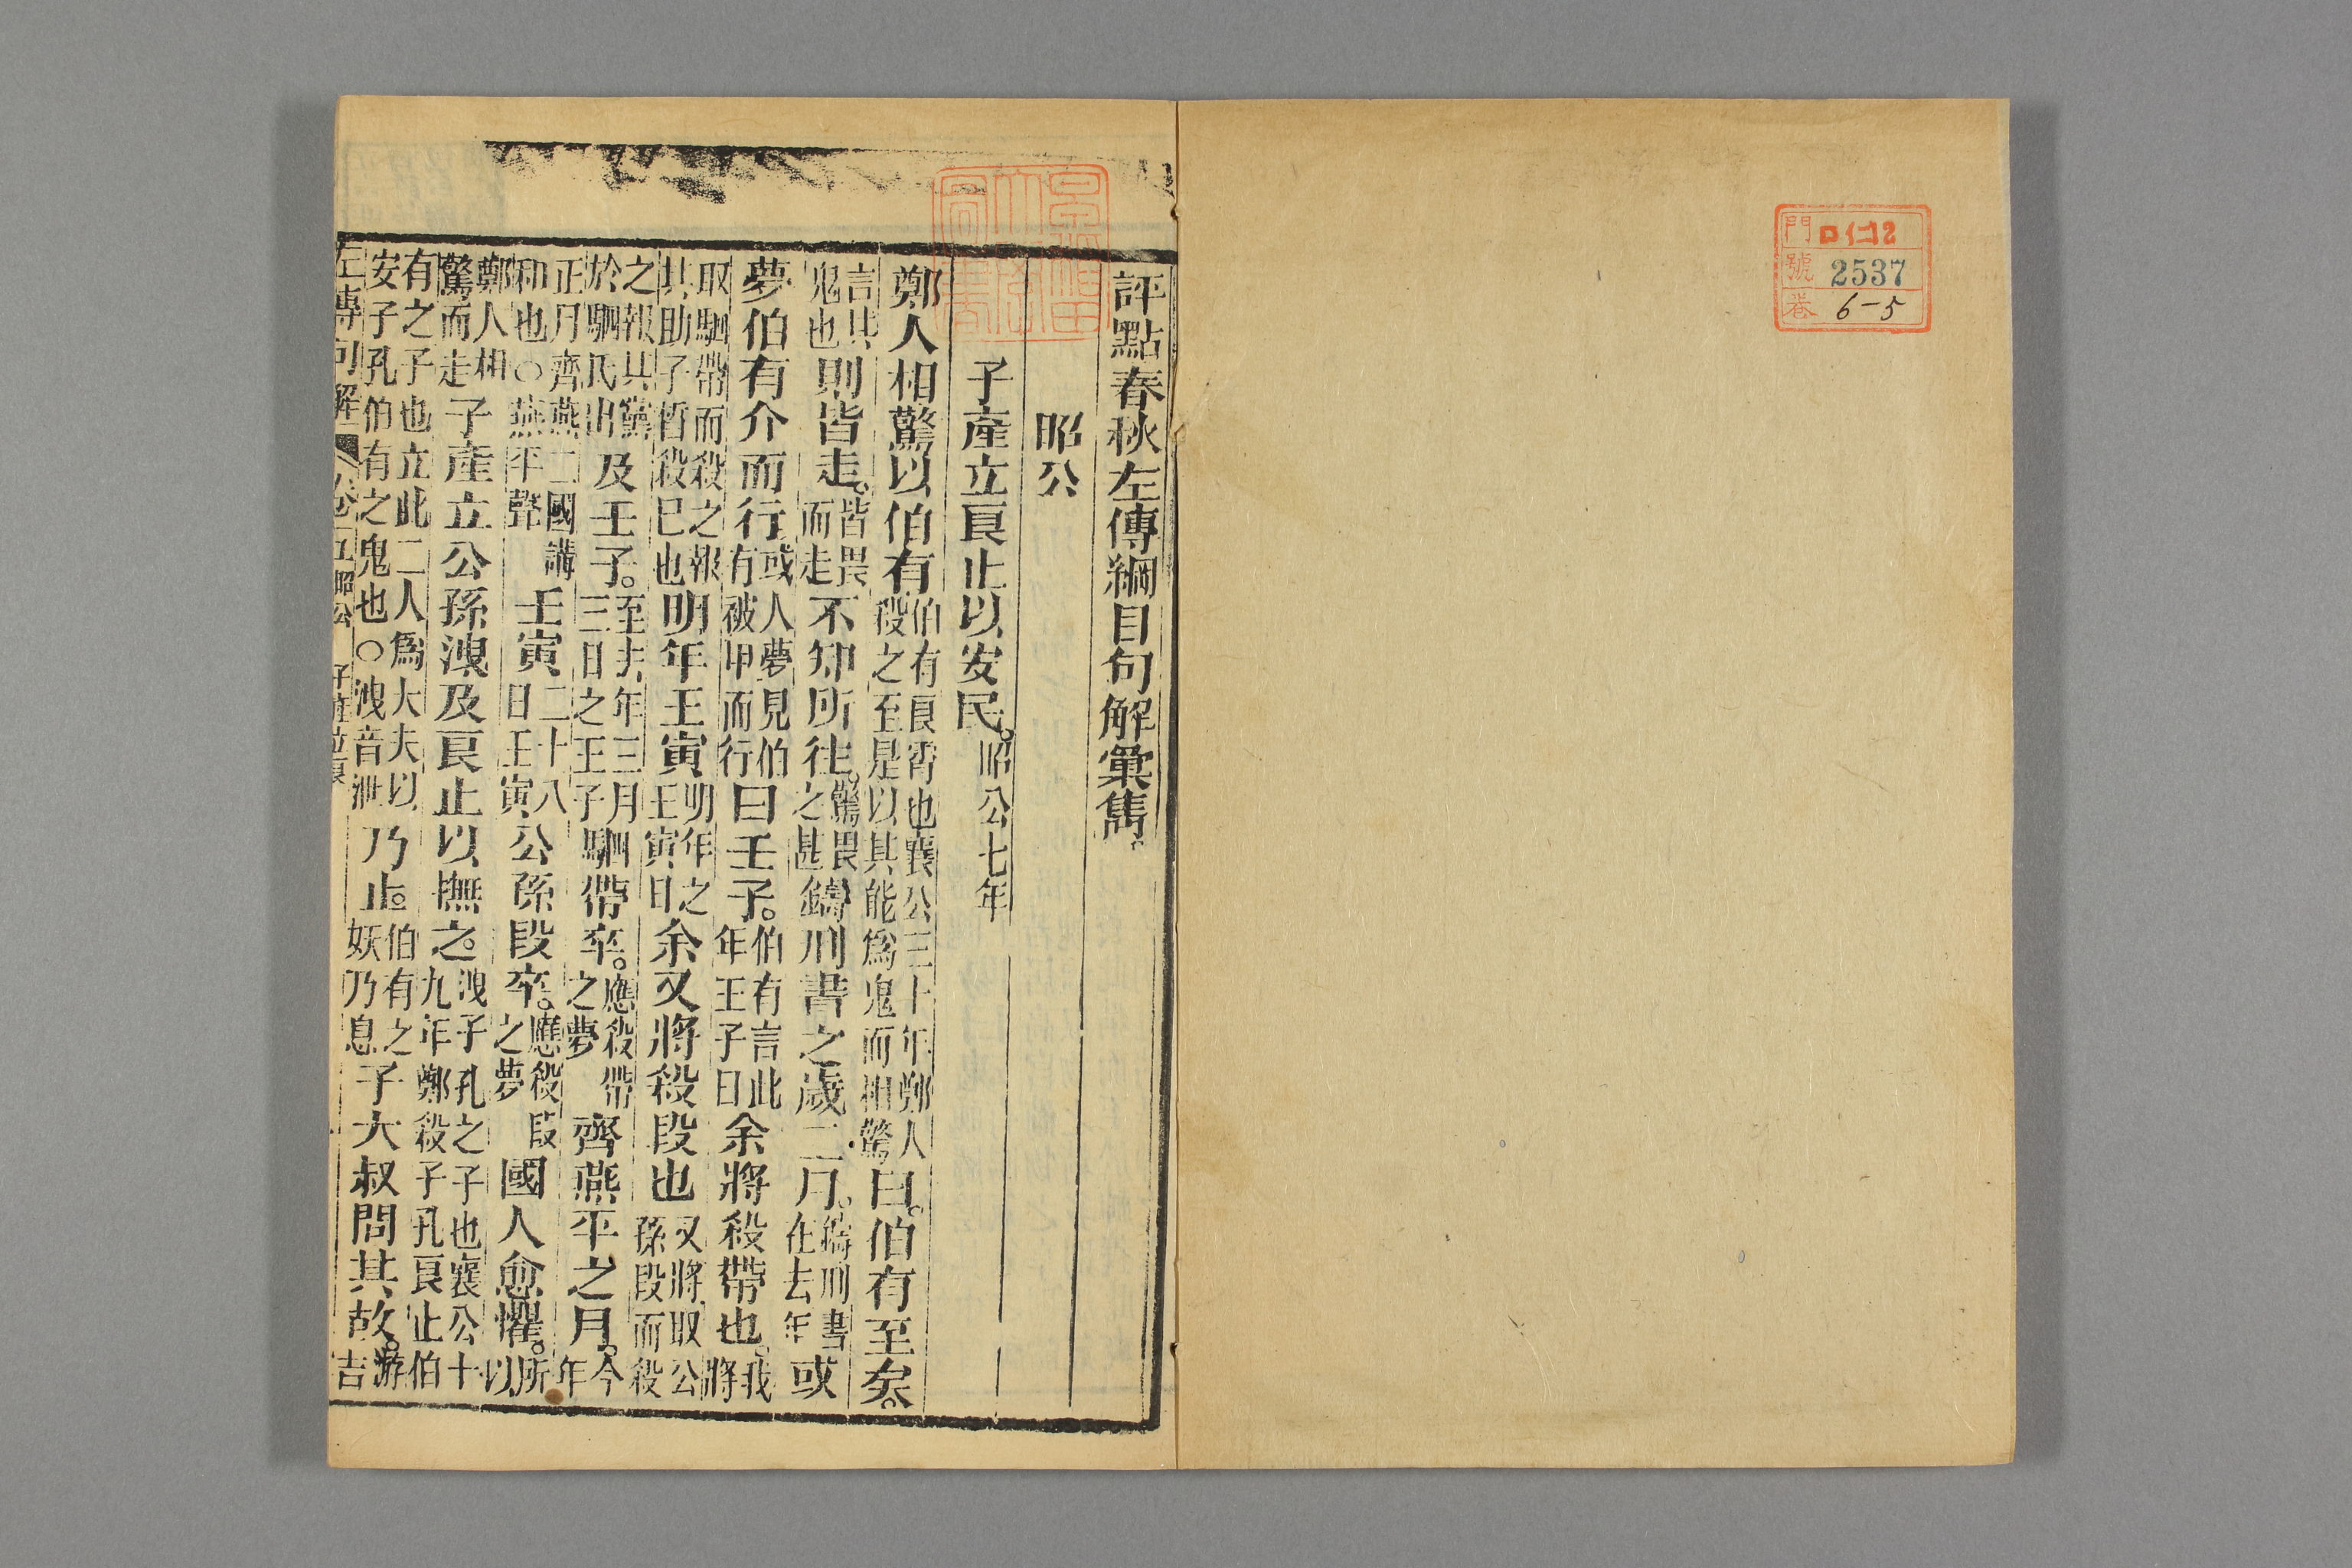 門 ロ12
號 2537
卷 6-5
評點春秋左傳綱目句解彙雋。
昭公
子產立良止以安民。昭公七年
鄭人相驚以伯有伯有良霄也襄公三十年鄭人殺之至是以其能爲鬼而相驚曰。伯有至矣。
言其鬼也則皆走。皆畏而走不知所往。驚畏之甚鑄刑書之歲二月。鑄刑書在去年或
夢伯有介而行或人夢見伯有被甲而行曰壬子。伯有言此年壬子日余將殺帶也。我將
取駟帶而殺之報其助子晳殺巳也明年壬寅明年之壬寅日余又將殺段也又將取公孫段而殺
之報其黨於駟氏出及壬子。至去年三月三日之壬子駟帶卒。應殺帶之夢齊燕平之月。今年
正月齊燕二國講和也○燕平聲壬寅二十八日壬寅公孫段卒。應殺段之夢國人愈懼。所以
鄭人相驚而走子產立公孫洩及良止以撫之。洩子孔之子也襄公十九年鄭殺子孔良止伯
有之子也立此二人爲大夫以安子孔伯有之鬼也○洩音泄乃止。伯有之妖乃息子大叔問其故。游吉
左傳句解 卷五昭公 子產立良